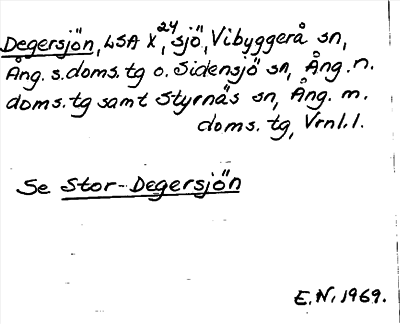 Degersjön, LSA X, 24 sjö, Vibyggerå sn,
Ång. s. doms. tg o. Sidensjö sn, Ång. n.
doms. tg samt Styrnäs sn, Ång. m.
doms. tg, Vrnl. l.
Se Stor-Degersjön
E. N. 1969.